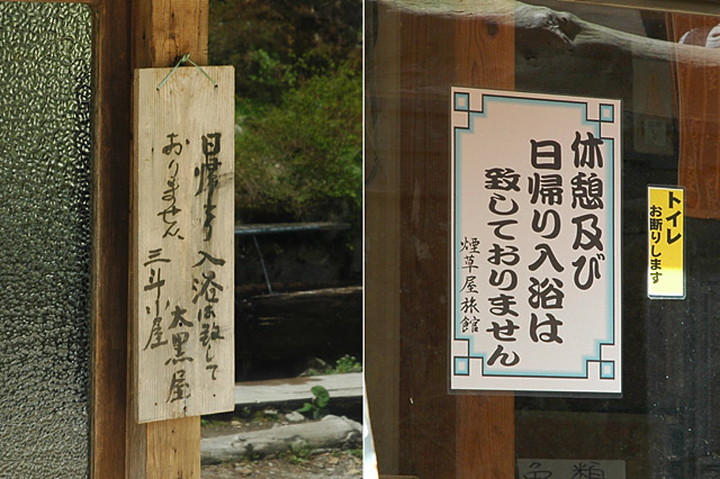 日帰り入浴は致して
おりません、
三斗小屋
大黒屋
休憩及び
日帰り入浴は
致しておりません
煙草屋旅館
トイレ
お断りします